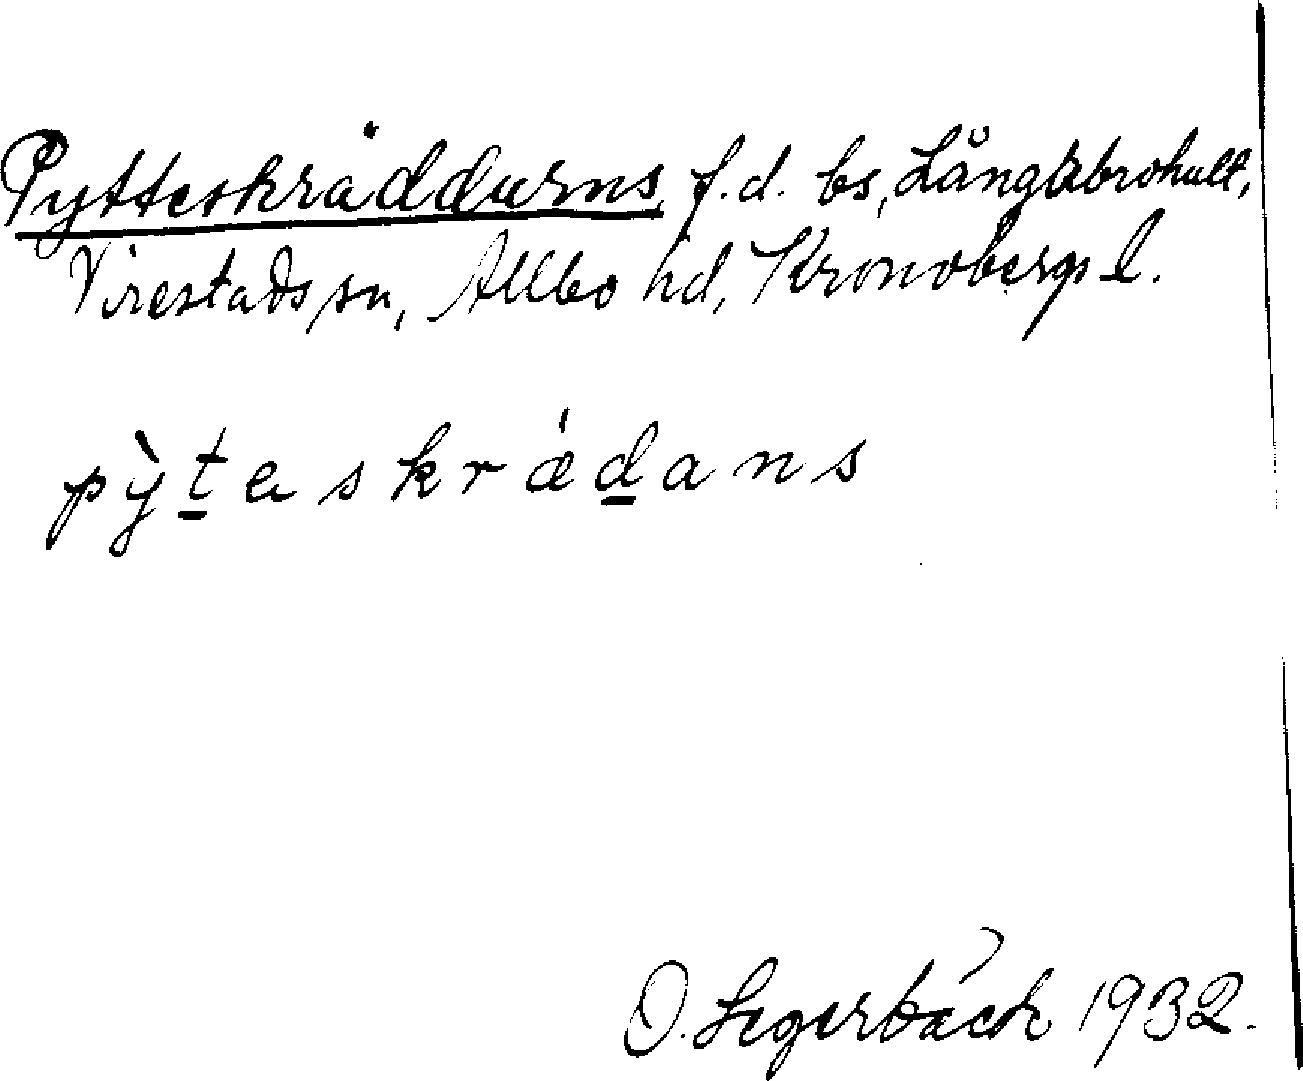 Pytteskräddarns, f.d. bs, Långabrohult,
Virestads sn, Allbo hd, Kronobergs l.
pỳteskrǽdans
O. Segerbäck 1932.